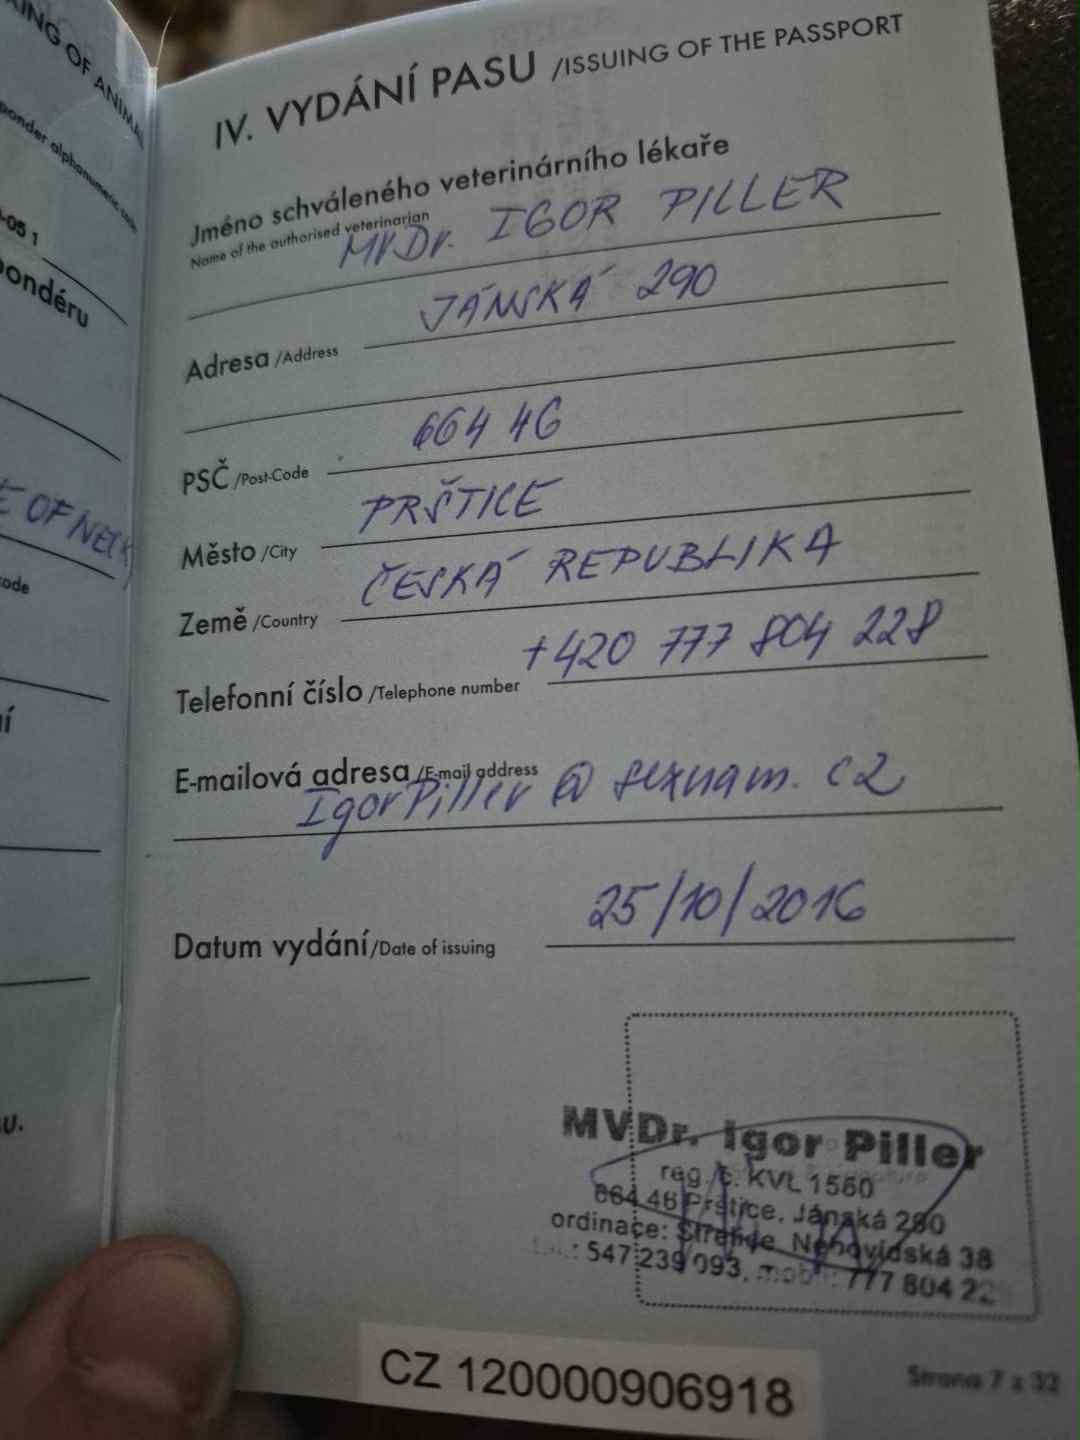 KING OF ANIMA
ponder alphanumeric code
-05 1
pondéru
E OF NECK
code
ní
su.
IV. VYDÁNÍ PASU /ISSUING OF THE PASSPORT
Jméno schváleného veterinárního lékaře
Name of the authorised veterinarian
MVDr. IGOR PILLER
Adresa /Address JÁNSKÁ 290
PSČ /Post-Code 664 46
Město /City PRŠTICE
Země /Country ČESKÁ REPUBLIKA
Telefonní číslo /Telephone number +420 777 804 228
E-mailová adresa /E-mail address
IgorPiller @ seznam. cz
Datum vydání /Date of issuing 25/10/2016
MVDr. Igor Piller
reg. č. KVL 1560
664 46 Prštice, Jánská 290
ordinace: Střelice, Nebovidská 38
547 239 093, mobil: 777 804 22
CZ 120000906918
Strana 7 z 32